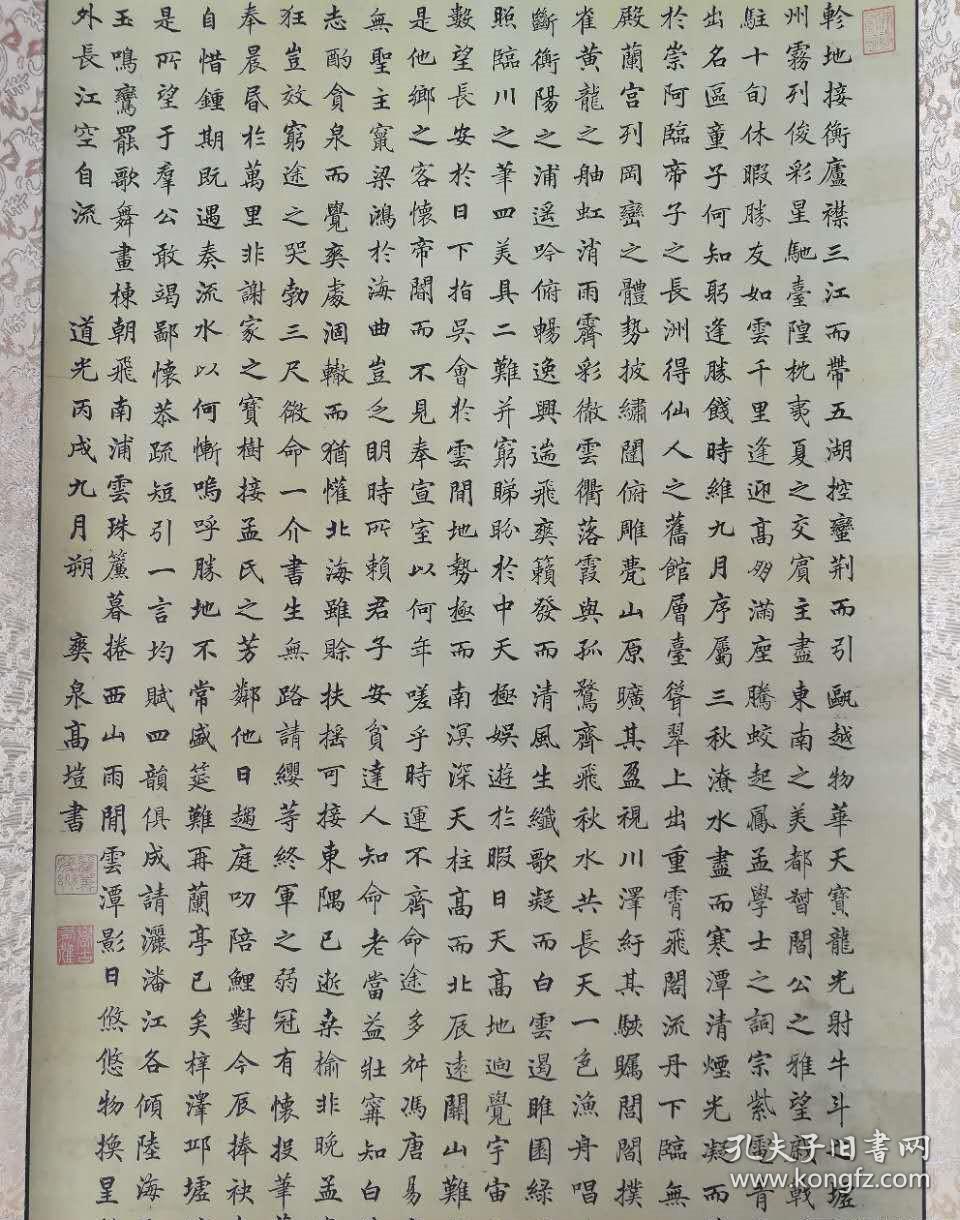 軫地接衡廬襟三江而帶五湖控蠻荊而引甌越物華天寶龍光射牛斗墟
州霧列俊彩星馳臺隍枕夷夏之交賓主盡東南之美都督閻公之雅望棨戟
駐十旬休暇勝友如雲千里逢迎高朋滿座騰蛟起鳳孟學士之詞宗紫電青
出名區童子何知躬逢勝餞時維九月序屬三秋潦水盡而寒潭清煙光凝而
於崇阿臨帝子之長洲得仙人之舊館層臺聳翠上出重霄飛閣流丹下臨無
殿蘭宮列岡巒之體勢披繡闥俯雕甍山原曠其盈視川澤紆其駭矚閭閻撲
雀黃龍之舳虹消雨霽彩徹雲衢落霞與孤鶩齊飛秋水共長天一色漁舟唱
斷衡陽之浦遙吟俯暢逸興遄飛爽籟發而清風生纖歌凝而白雲遏睢園綠
照臨川之筆四美具二難并窮睇眄於中天極娛遊於暇日天高地迥覺宇宙
數望長安於日下指吳會於雲間地勢極而南溟深天柱高而北辰遠關山難
是他鄉之客懷帝閽而不見奉宣室以何年嗟乎時運不齊命途多舛馮唐易
無聖主竄梁鴻於海曲豈乏明時所賴君子安貧達人知命老當益壯寗知白
志酌貪泉而覺爽處涸轍而猶懽北海雖賒扶搖可接東隅已逝桑榆非晚孟
狂豈效窮途之哭勃三尺微命一介書生無路請纓等終軍之弱冠有懷投筆
奉晨昏於萬里非謝家之寶樹接孟氏之芳鄰他日趨庭叨陪鯉對今辰捧袂
自惜鍾期既遇奏流水以何慚嗚呼勝地不常盛筵難再蘭亭已矣梓澤邱墟
是所望于羣公敢竭鄙懷恭疏短引一言均賦四韻俱成請灑潘江各傾陸海
玉鳴鸞罷歌舞畫棟朝飛南浦雲珠簾暮捲西山雨閒雲潭影日悠悠物換星
外長江空自流 道光丙戌九月朔 爽泉高塏書
孔夫子旧书网
www.kongfz.com